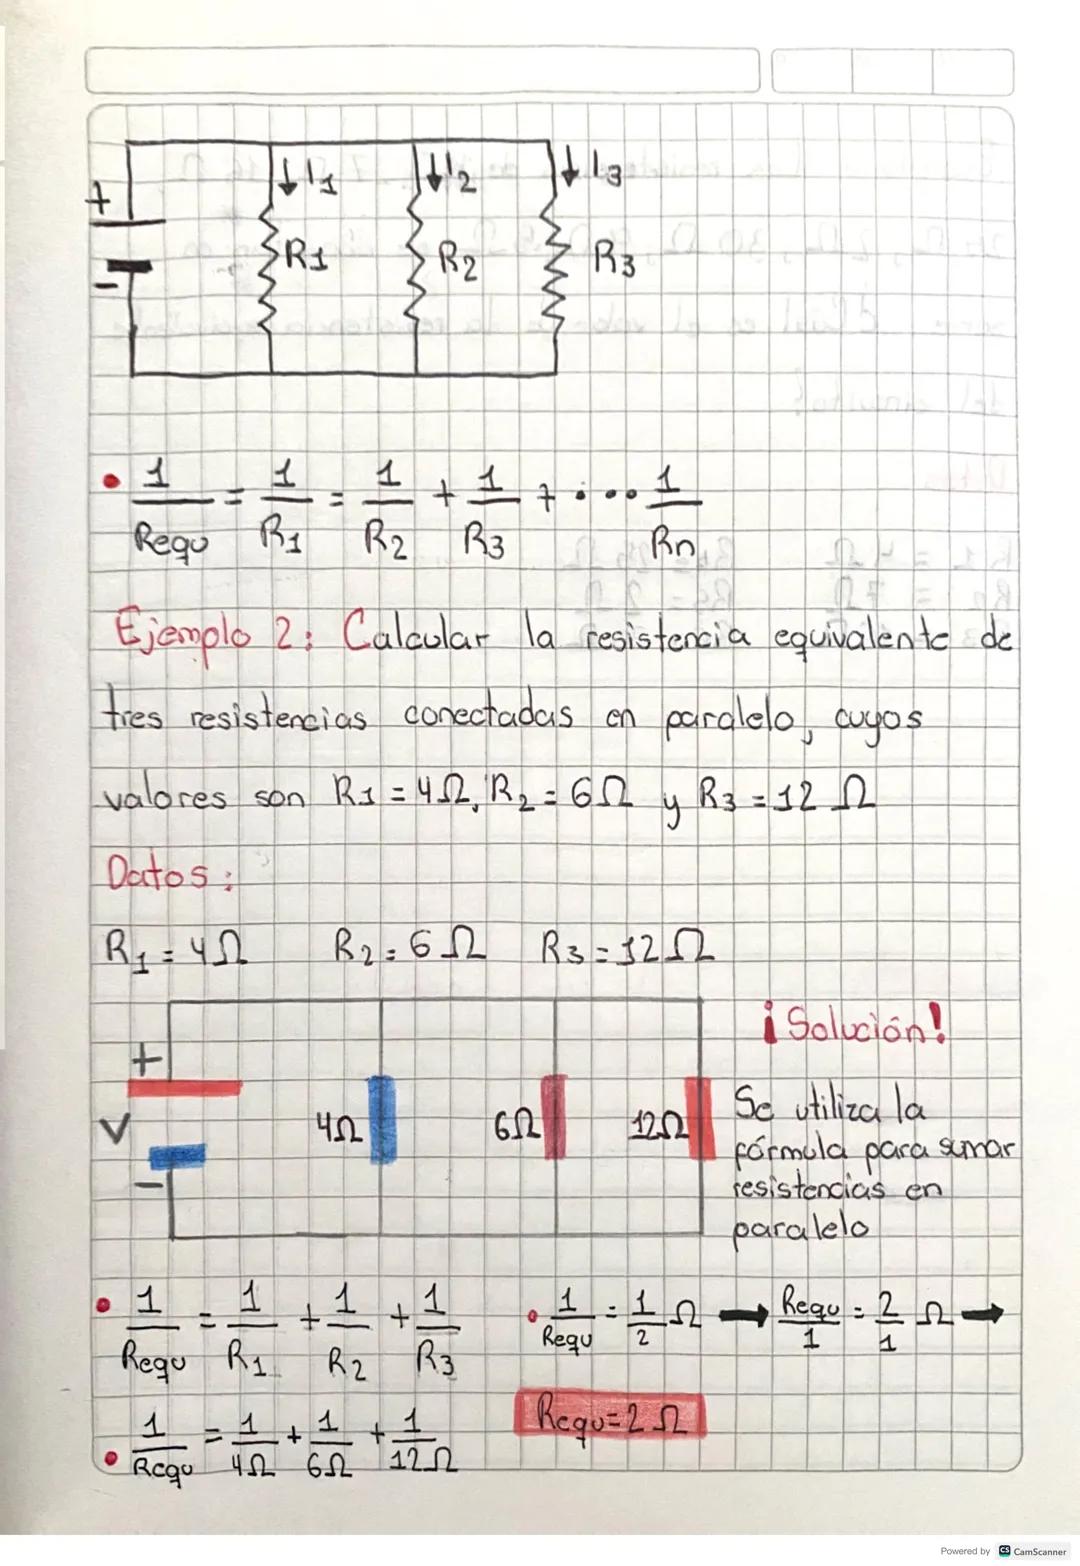 +
-
↓I1 ↓I2 ↓I3
R1 R2 R3
• 1/Requ = 1/R1 = 1/R2 + 1/R3 + ... 1/Rn
Ejemplo 2: Calcular la resistencia equivalente de
tres resistencias conectadas en paralelo, cuyos
valores son R1 = 4Ω, R2 = 6Ω y R3 = 12 Ω
Datos:
R1 = 4Ω R2 = 6 Ω R3 = 12 Ω
+
V
-
4Ω 6Ω 12Ω
¡Solución!
Se utiliza la
fórmula para sumar
resistencias en
paralelo
• 1/Requ = 1/R1 + 1/R2 + 1/R3
• 1/Requ = 1/4Ω + 1/6Ω + 1/12Ω
• 1/Requ = 1/2 Ω → Requ/1 = 2/1 Ω →
Requ = 2 Ω
Powered by CS CamScanner